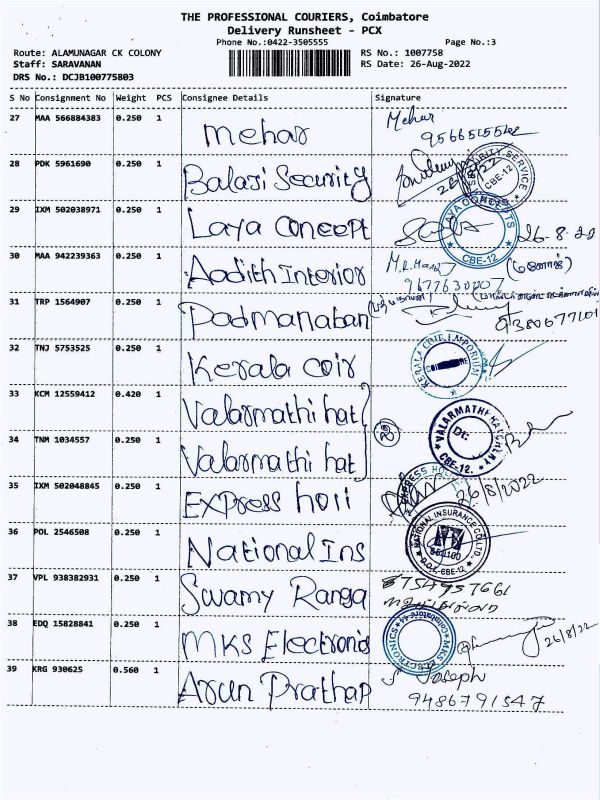 THE PROFESSIONAL COURIERS, Coimbatore
Delivery Runsheet - PCX
Phone No.:0422-3505555 Page No.:3
Route: ALAMUNAGAR CK COLONY RS No.: 1007758
Staff: SARAVANAN RS Date: 26-Aug-2022
DRS No.: DCJB100775803
S No Consignment No Weight PCS Consignee Details Signature
27 MAA 566884383 0.250 1 Mehar Mehar
28 PDK 5961690 0.250 1 Balaji Security SECURITY SERVICE CBE-12
29 IXM 502038971 0.250 1 Laya Concept LAYA CONCEPTS CBE-12 26-8-22
30 MAA 942239363 0.250 1 Aadith Interior M.R.Manoj (மனோஜ்)
9677630007
31 TRP 1564907 0.250 1 Padmanaban
9380677101
32 TNJ 5753525 0.250 1 Kerala coir KERALA COIR EMPORIUM
33 KCM 12559412 0.420 1 Valarmathi hat
VALARMATHI HATCHERY Dt: CBE-12.
34 TNM 1034557 0.250 1 Valarmathi hat
35 IXM 502048845 0.250 1 Express holi EXPRESS 26/8/2022
36 POL 2546508 0.250 1 National Ins NATIONAL INSURANCE CO. LTD. CBE-12
37 VPL 938382931 0.250 1 Swamy Ranga 8754957661
38 EDQ 15828841 0.250 1 MKS Electronis MKS ELECTRONICS Coimbatore-44 26/8/22
39 KRG 930625 0.560 1 Arun Prathap S Joseph
9486791547